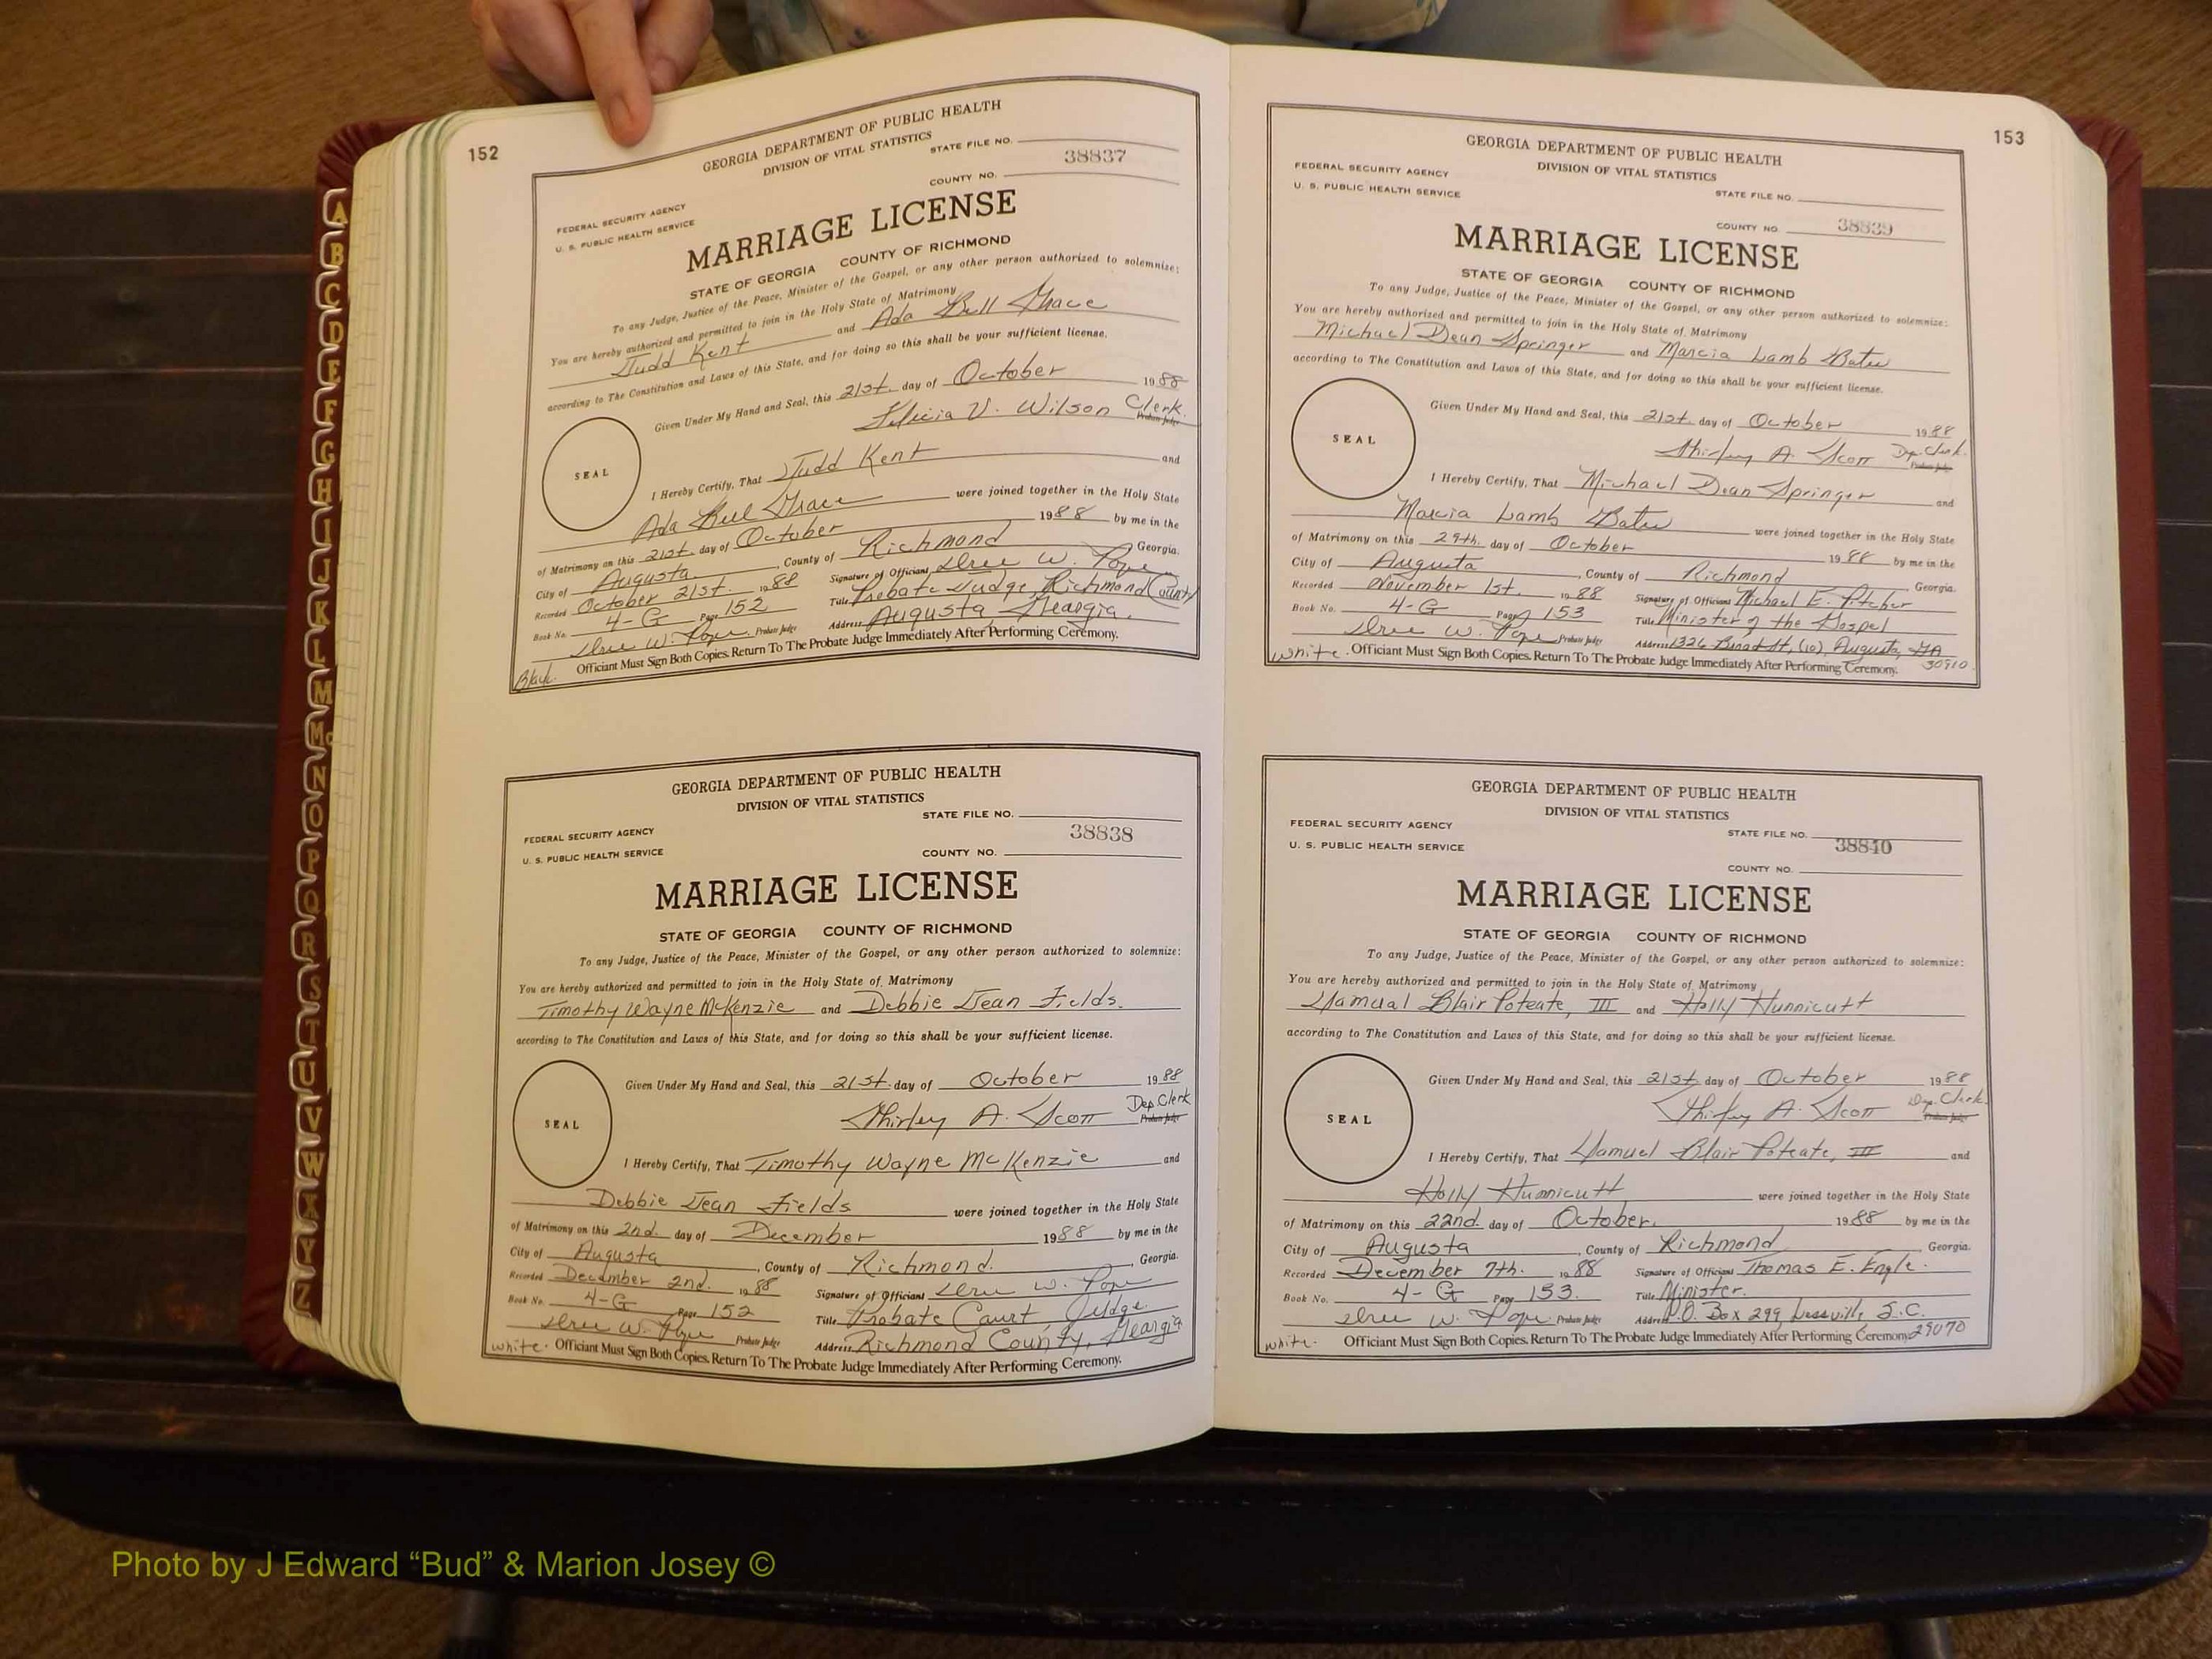 152
GEORGIA DEPARTMENT OF PUBLIC HEALTH
DIVISION OF VITAL STATISTICS
STATE FILE NO.
38837
COUNTY NO.
FEDERAL SECURITY AGENCY
U. S. PUBLIC HEALTH SERVICE
MARRIAGE LICENSE
STATE OF GEORGIA COUNTY OF RICHMOND
To any Judge, Justice of the Peace, Minister of the Gospel, or any other person authorized to solemnize:
You are hereby authorized and permitted to join in the Holy State of Matrimony
Judd Kent and Ada Bell Grace
according to The Constitution and Laws of this State, and for doing so this shall be your sufficient license.
Given Under My Hand and Seal, this 21st. day of October 1988
Felicia V. Wilson Clerk.
Probate Judge
SEAL
I Hereby Certify, That Judd Kent and
Ada Bell Grace were joined together in the Holy State
of Matrimony on this 21st. day of October 1988 by me in the
City of Augusta, County of Richmond Georgia.
Recorded October 21st. 1988 Signature of Officiant W. Pope
Book No. 4-G Page 152 Title Probate Judge, Richmond County
W. Pope Probate Judge Address Augusta, Georgia.
Black. Officiant Must Sign Both Copies. Return To The Probate Judge Immediately After Performing Ceremony.
GEORGIA DEPARTMENT OF PUBLIC HEALTH
DIVISION OF VITAL STATISTICS
STATE FILE NO.
38838
FEDERAL SECURITY AGENCY
U. S. PUBLIC HEALTH SERVICE
COUNTY NO.
MARRIAGE LICENSE
STATE OF GEORGIA COUNTY OF RICHMOND
To any Judge, Justice of the Peace, Minister of the Gospel, or any other person authorized to solemnize:
You are hereby authorized and permitted to join in the Holy State of Matrimony
Timothy Wayne McKenzie and Debbie Jean Fields.
according to The Constitution and Laws of this State, and for doing so this shall be your sufficient license.
Given Under My Hand and Seal, this 21st. day of October 1988
Shirley A. Scott Dep. Clerk
Probate Judge
SEAL
I Hereby Certify, That Timothy Wayne McKenzie and
Debbie Jean Fields were joined together in the Holy State
of Matrimony on this 2nd. day of December 1988 by me in the
City of Augusta, County of Richmond. Georgia.
Recorded December 2nd. 1988 Signature of Officiant W. Pope
Book No. 4-G Page 152 Title Probate Court Judge.
W. Pope Probate Judge Address Richmond County, Georgia
White. Officiant Must Sign Both Copies. Return To The Probate Judge Immediately After Performing Ceremony.
153
GEORGIA DEPARTMENT OF PUBLIC HEALTH
DIVISION OF VITAL STATISTICS
FEDERAL SECURITY AGENCY
U. S. PUBLIC HEALTH SERVICE
STATE FILE NO.
COUNTY NO. 38839
MARRIAGE LICENSE
STATE OF GEORGIA COUNTY OF RICHMOND
To any Judge, Justice of the Peace, Minister of the Gospel, or any other person authorized to solemnize:
You are hereby authorized and permitted to join in the Holy State of Matrimony
Michael Dean Springer and Marcia Lamb
according to The Constitution and Laws of this State, and for doing so this shall be your sufficient license.
Given Under My Hand and Seal, this 21st. day of October 1988
Shirley A. Scott Dep. Clerk.
Probate Judge
SEAL
I Hereby Certify, That Michael Dean Springer and
Marcia Lamb were joined together in the Holy State
of Matrimony on this 29th. day of October 1988 by me in the
City of Augusta, County of Richmond Georgia.
Recorded November 1st. 1988 Signature of Officiant Michael E. Pitcher
Book No. 4-G Page 153 Title Minister of the Gospel
W. Pope Probate Judge Address 1326 Broad St, (10), Augusta, GA
White. Officiant Must Sign Both Copies. Return To The Probate Judge Immediately After Performing Ceremony. 30910
GEORGIA DEPARTMENT OF PUBLIC HEALTH
DIVISION OF VITAL STATISTICS
FEDERAL SECURITY AGENCY
STATE FILE NO.
U. S. PUBLIC HEALTH SERVICE
38840
COUNTY NO.
MARRIAGE LICENSE
STATE OF GEORGIA COUNTY OF RICHMOND
To any Judge, Justice of the Peace, Minister of the Gospel, or any other person authorized to solemnize:
You are hereby authorized and permitted to join in the Holy State of Matrimony
Samual Blair Poteate, III and Holly Hunnicutt
according to The Constitution and Laws of this State, and for doing so this shall be your sufficient license.
Given Under My Hand and Seal, this 21st. day of October 1988
Shirley A. Scott Dep. Clerk.
Probate Judge
SEAL
I Hereby Certify, That Samuel Blair Poteate, III and
Holly Hunnicutt were joined together in the Holy State
of Matrimony on this 22nd. day of October. 1988 by me in the
City of Augusta, County of Richmond Georgia.
Recorded December 7th. 1988 Signature of Officiant Thomas E. Engle.
Book No. 4-G Page 153. Title Minister.
W. Pope Probate Judge Address P.O. Box 299, S.C.
White. Officiant Must Sign Both Copies. Return To The Probate Judge Immediately After Performing Ceremony. 29070
A
B
C
D
E
F
G
H
I
J
K
L
M
Mc
N
O
P
Q
R
S
T
U
V
W
X
Y
Z
Photo by J Edward “Bud” & Marion Josey ©